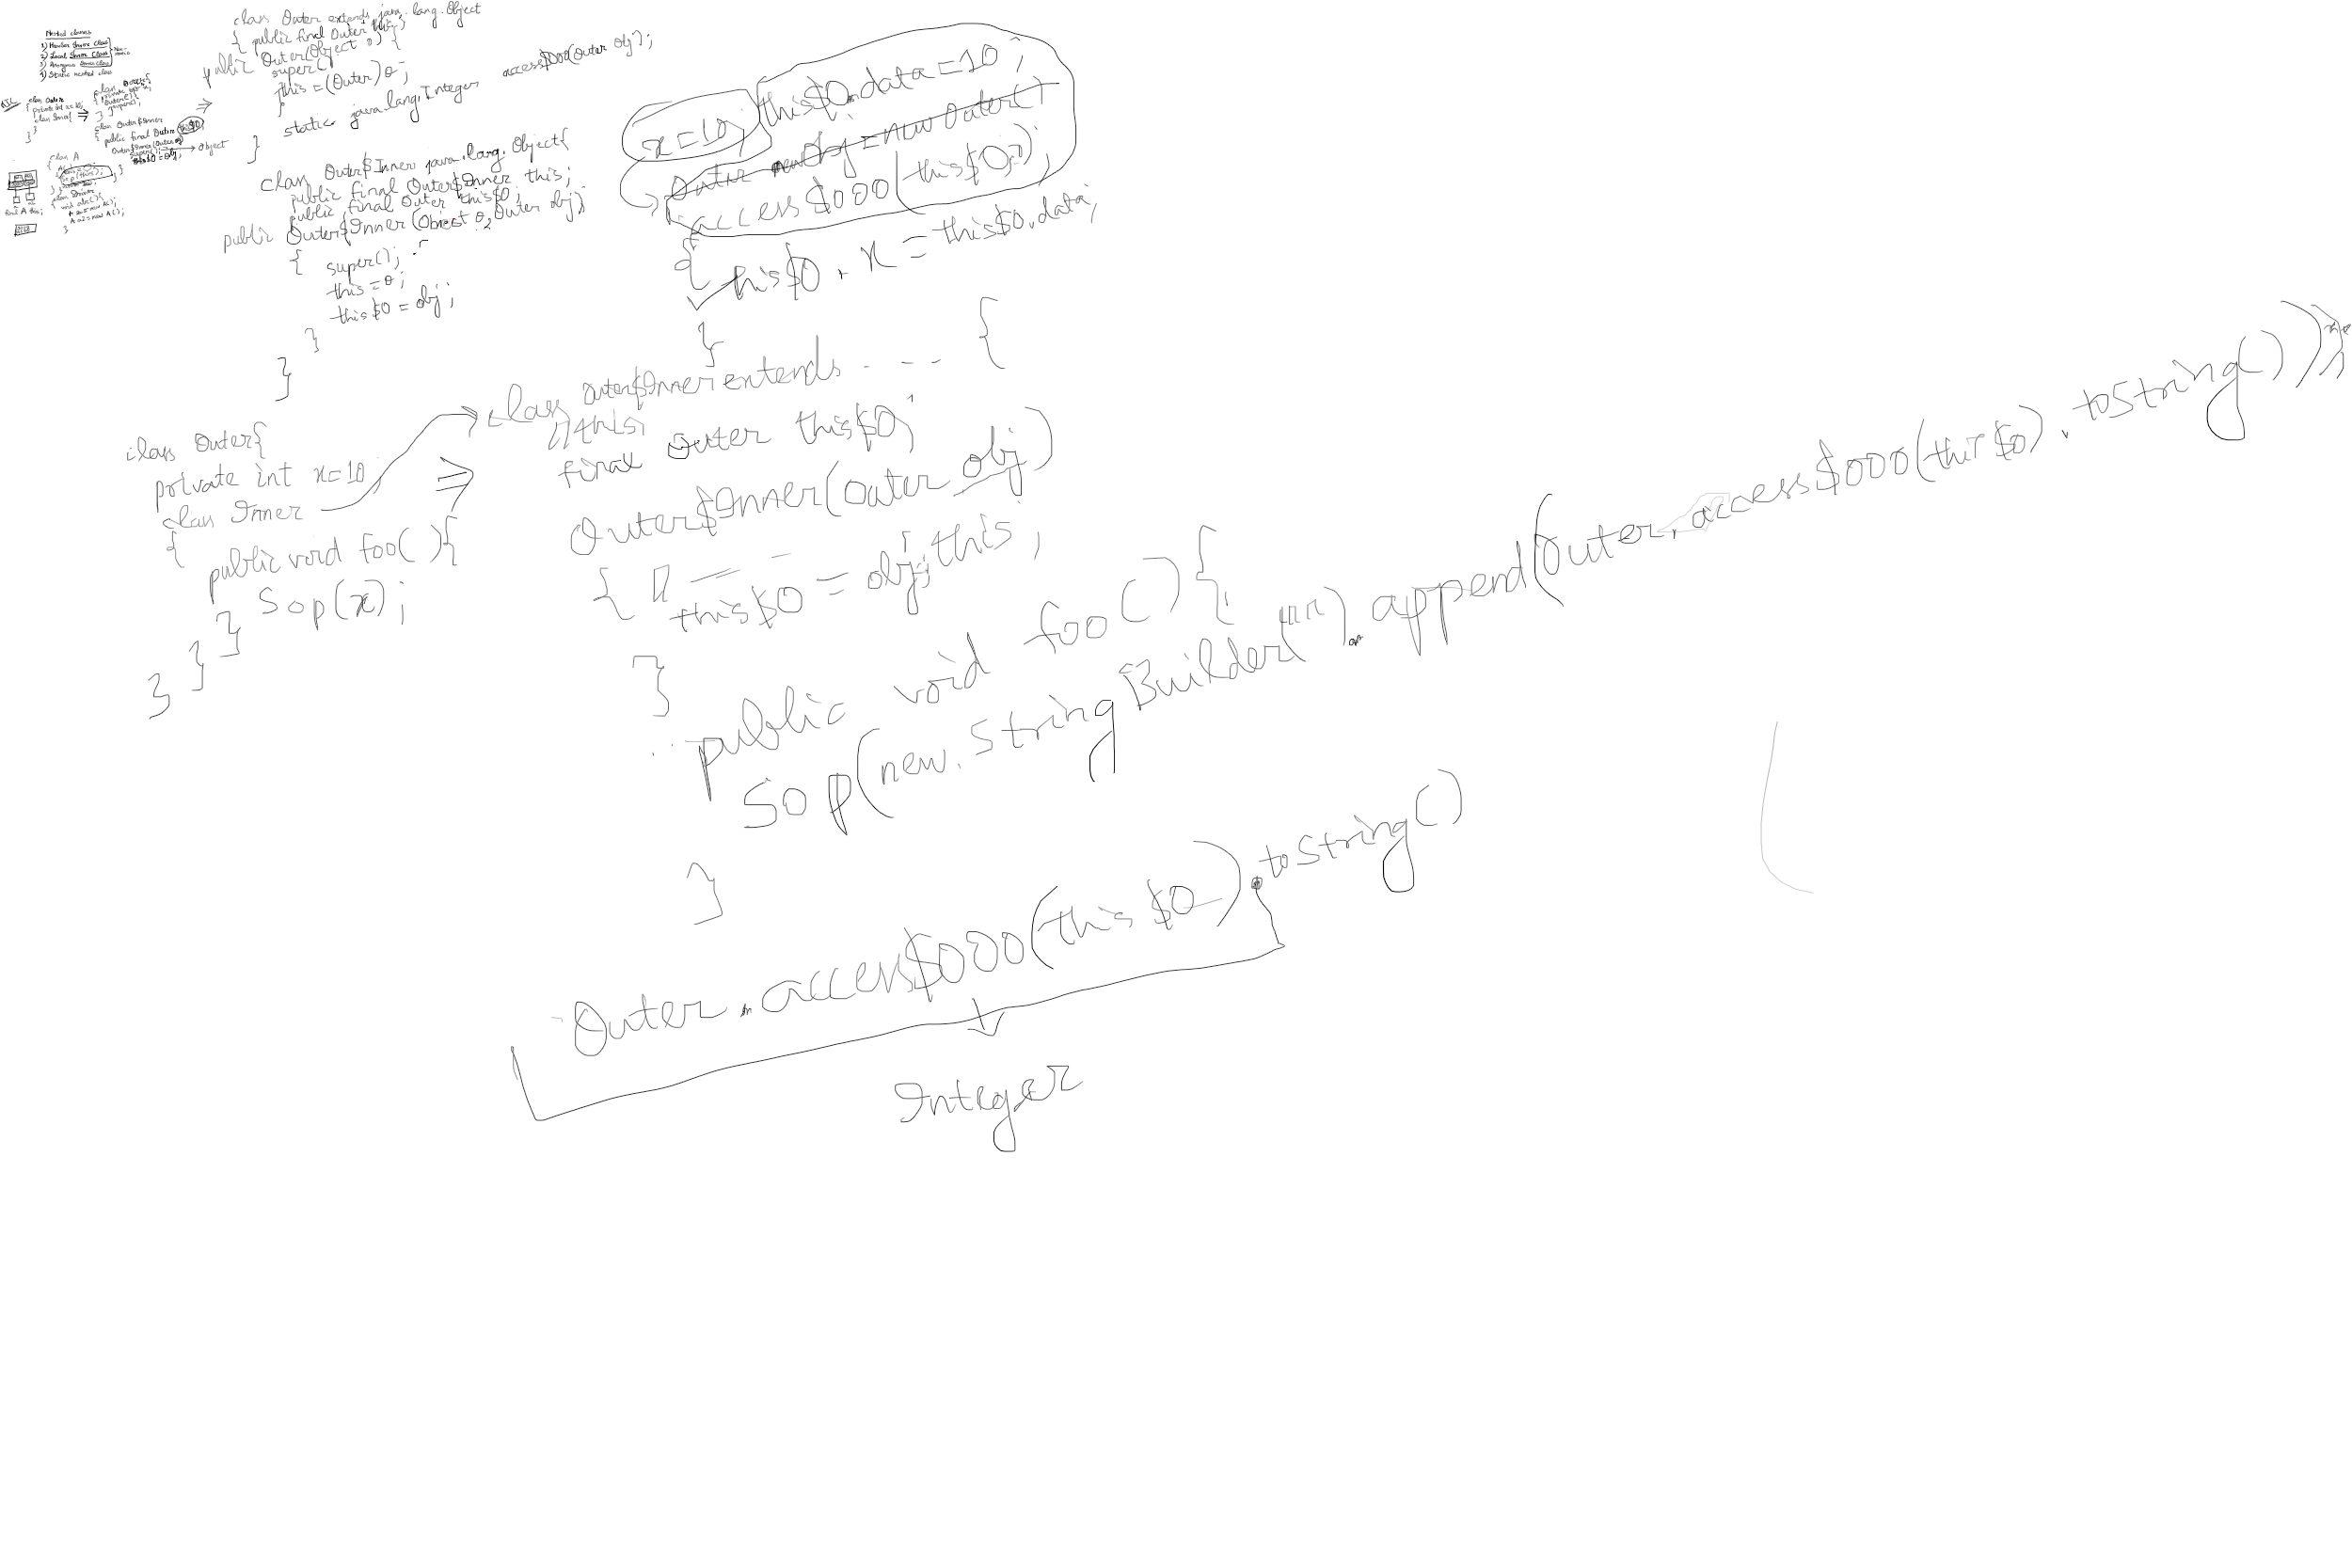 Nested classes
1) Member Inner Class
2) Local Inner Class
3) Anonymous Inner Class
4) Static nested class
class Outer
private int x=10;
class Inner{ ⇒
}
}
super();
}
class Outer$Inner
{ public final Outer this$0;
Outer$Inner(Outer obj)
super(); → Object
this$0 = obj;
class A
{
Sop(this);
}
{ void abc(){
A a1=new A();
A a2=new A();
}
⇒
class Outer extends java.lang.Object
{ public final Outer this;
public Outer(Object o) {
super();
this = (Outer) o;
}
static java.lang.Integer access$000(Outer obj);
}
class Outer$Inner java.lang.Object{
public final Outer$Inner this;
public final Outer this$0;
public Outer$Inner(Object o, Outer obj)
{ super();
this = o;
this$0 = obj;
}
}
x=10;
this$0.data=10;
Outer obj=new Outer()
access$000(this$0);
{
this$0.x = this$0.data;
}
class Outer{
private int x=10
class Inner
{
public void foo(){
Sop(x);
}
}
}
⇒
class Outer$Inner extends - - - {
//this;
final Outer this$0;
Outer$Inner(Outer obj)
{
this$0 = obj;this;
}
public void foo(){
Sop(new.StringBuilder("").append(Outer.access$000(this$0).toString()));
}
Outer.access$000(this$0).toString()
Integer